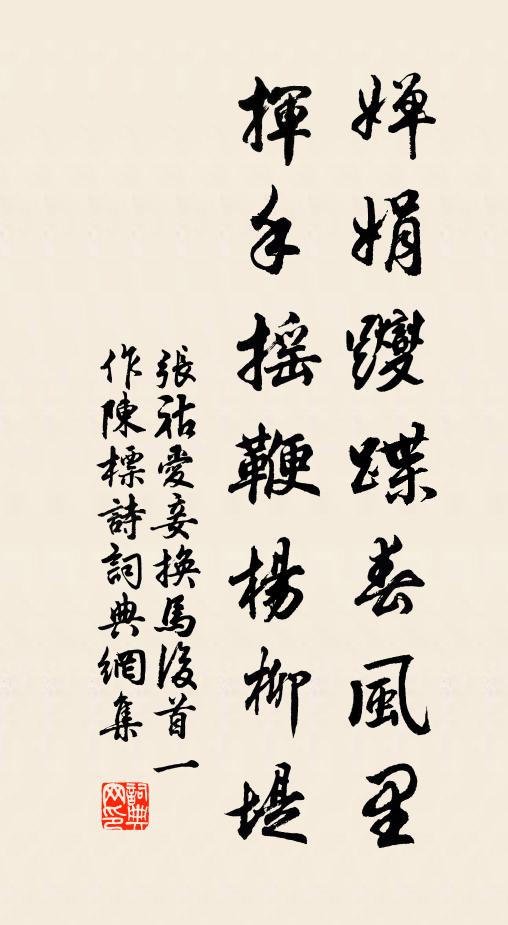 嬋娟躞蹀春風里
揮手摇鞭楊柳堤
張祜愛妾換馬後首一
作陳標詩詞典網集
詞典
网印